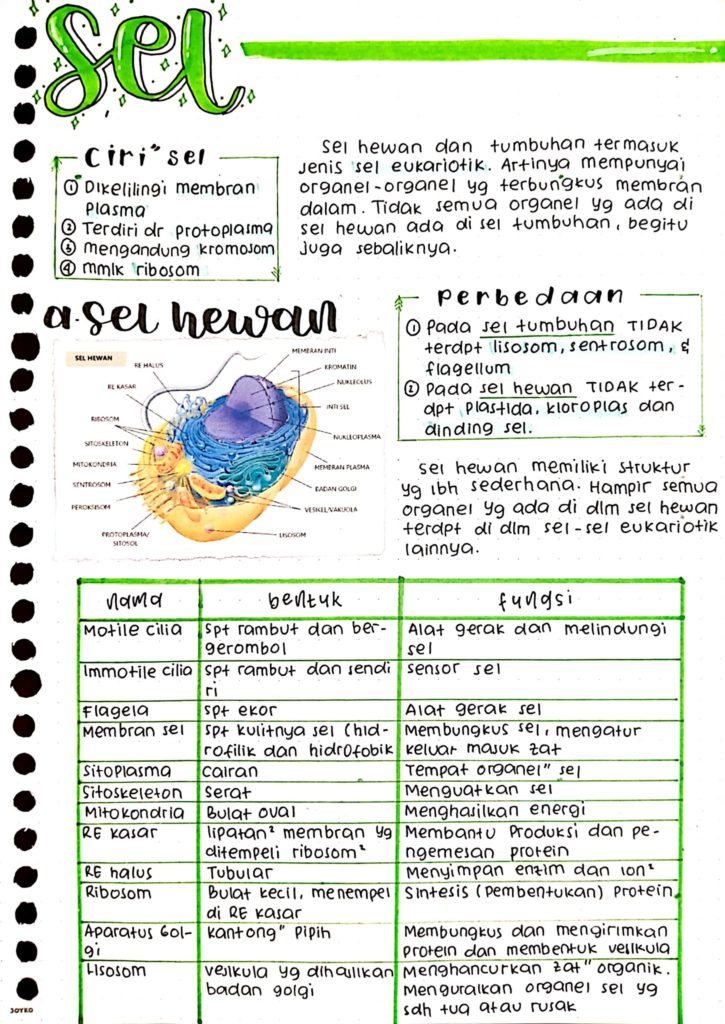 sel
Ciri" sel
① Dikelilingi membran
Plasma
② Terdiri dr protoplasma
③ mengandung kromosom
④ mmlk ribosom
Sel hewan dan tumbuhan termasuk
jenis sel eukariotik. Artinya mempunyai
organel-organel yg terbungkus membran
dalam. Tidak semua organel yg ada di
sel hewan ada di sel tumbuhan, begitu
juga sebaliknya.
a. sel hewan
SEL HEWAN
RE HALUS
RE KASAR
RIBOSOM
SITOSKELETON
MITOKONDRIA
SENTROSOM
PEROKSISOM
PROTOPLASMA/
SITOSOL
MEMBRAN INTI
KROMATIN
NUKLEOLUS
INTI SEL
NUKLEOPLASMA
MEMBRAN PLASMA
BADAN GOLGI
VESIKEL/VAKUOLA
LISOSOM
Perbedaan
① Pada sel tumbuhan TIDAK
terdpt lisosom, sentrosom, &
flagellum
② Pada sel hewan TIDAK ter-
dpt plastida, kloroplas dan
dinding sel.
Sel hewan memiliki struktur
yg lbh sederhana. Hampir semua
organel yg ada di dlm sel hewan
terdpt di dlm sel-sel eukariotik
lainnya.
nama bentuk fungsi
Motile cilia spt rambut dan ber- Alat gerak dan melindungi
gerombol sel
Immotile cilia spt rambut dan sendi sensor sel
ri
Flagela spt ekor Alat gerak sel
Membran sel spt kulitnya sel (hid- Membungkus sel, mengatur
rofilik dan hidrofobik keluar masuk zat
Sitoplasma cairan Tempat organel" sel
Sitoskeleton serat Menguatkan sel
Mitokondria Bulat oval Menghasilkan energi
RE kasar lipatan² membran yg Membantu Produksi dan pe-
ditempeli ribosom² ngemesan protein
RE halus Tubular Menyimpan enzim dan ion²
Ribosom Bulat kecil, menempel Sintesis (Pembentukan) Protein
di RE kasar
Aparatus Gol- kantong" pipih Membungkus dan mengirimkan
gi protein dan membentuk vesikula
Lisosom vesikula yg dihasilkan Menghancurkan zat" organik.
badan golgi Menguraikan organel sel yg
sdh tua atau rusak
JOYKO